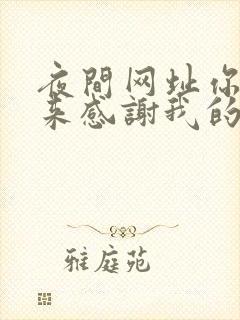 夜間网址你
来感謝我的
雅庭苑